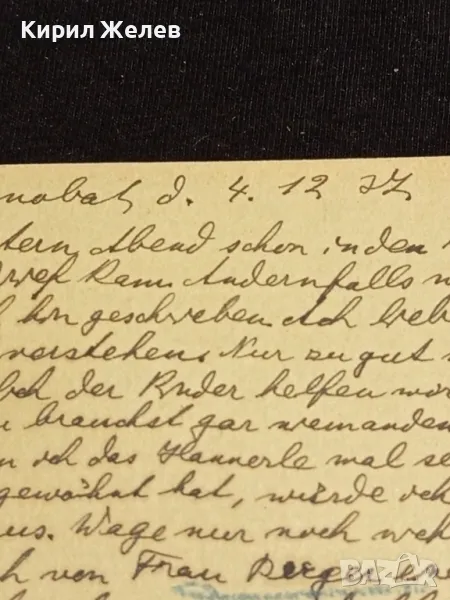 Кирил Желев
nobat, d. 4. 12 37
tern Abend schon in den
Brief kam. Andernfalls
hin geschrieben. Ach lieb
verstehen. Nur zu gut
doch der Bruder helfen
brauchst gar niemanden
ich das Hannerle mal
gewöhnt hat, würde ich
us. Wage nur noch
von Frau
BAZAR